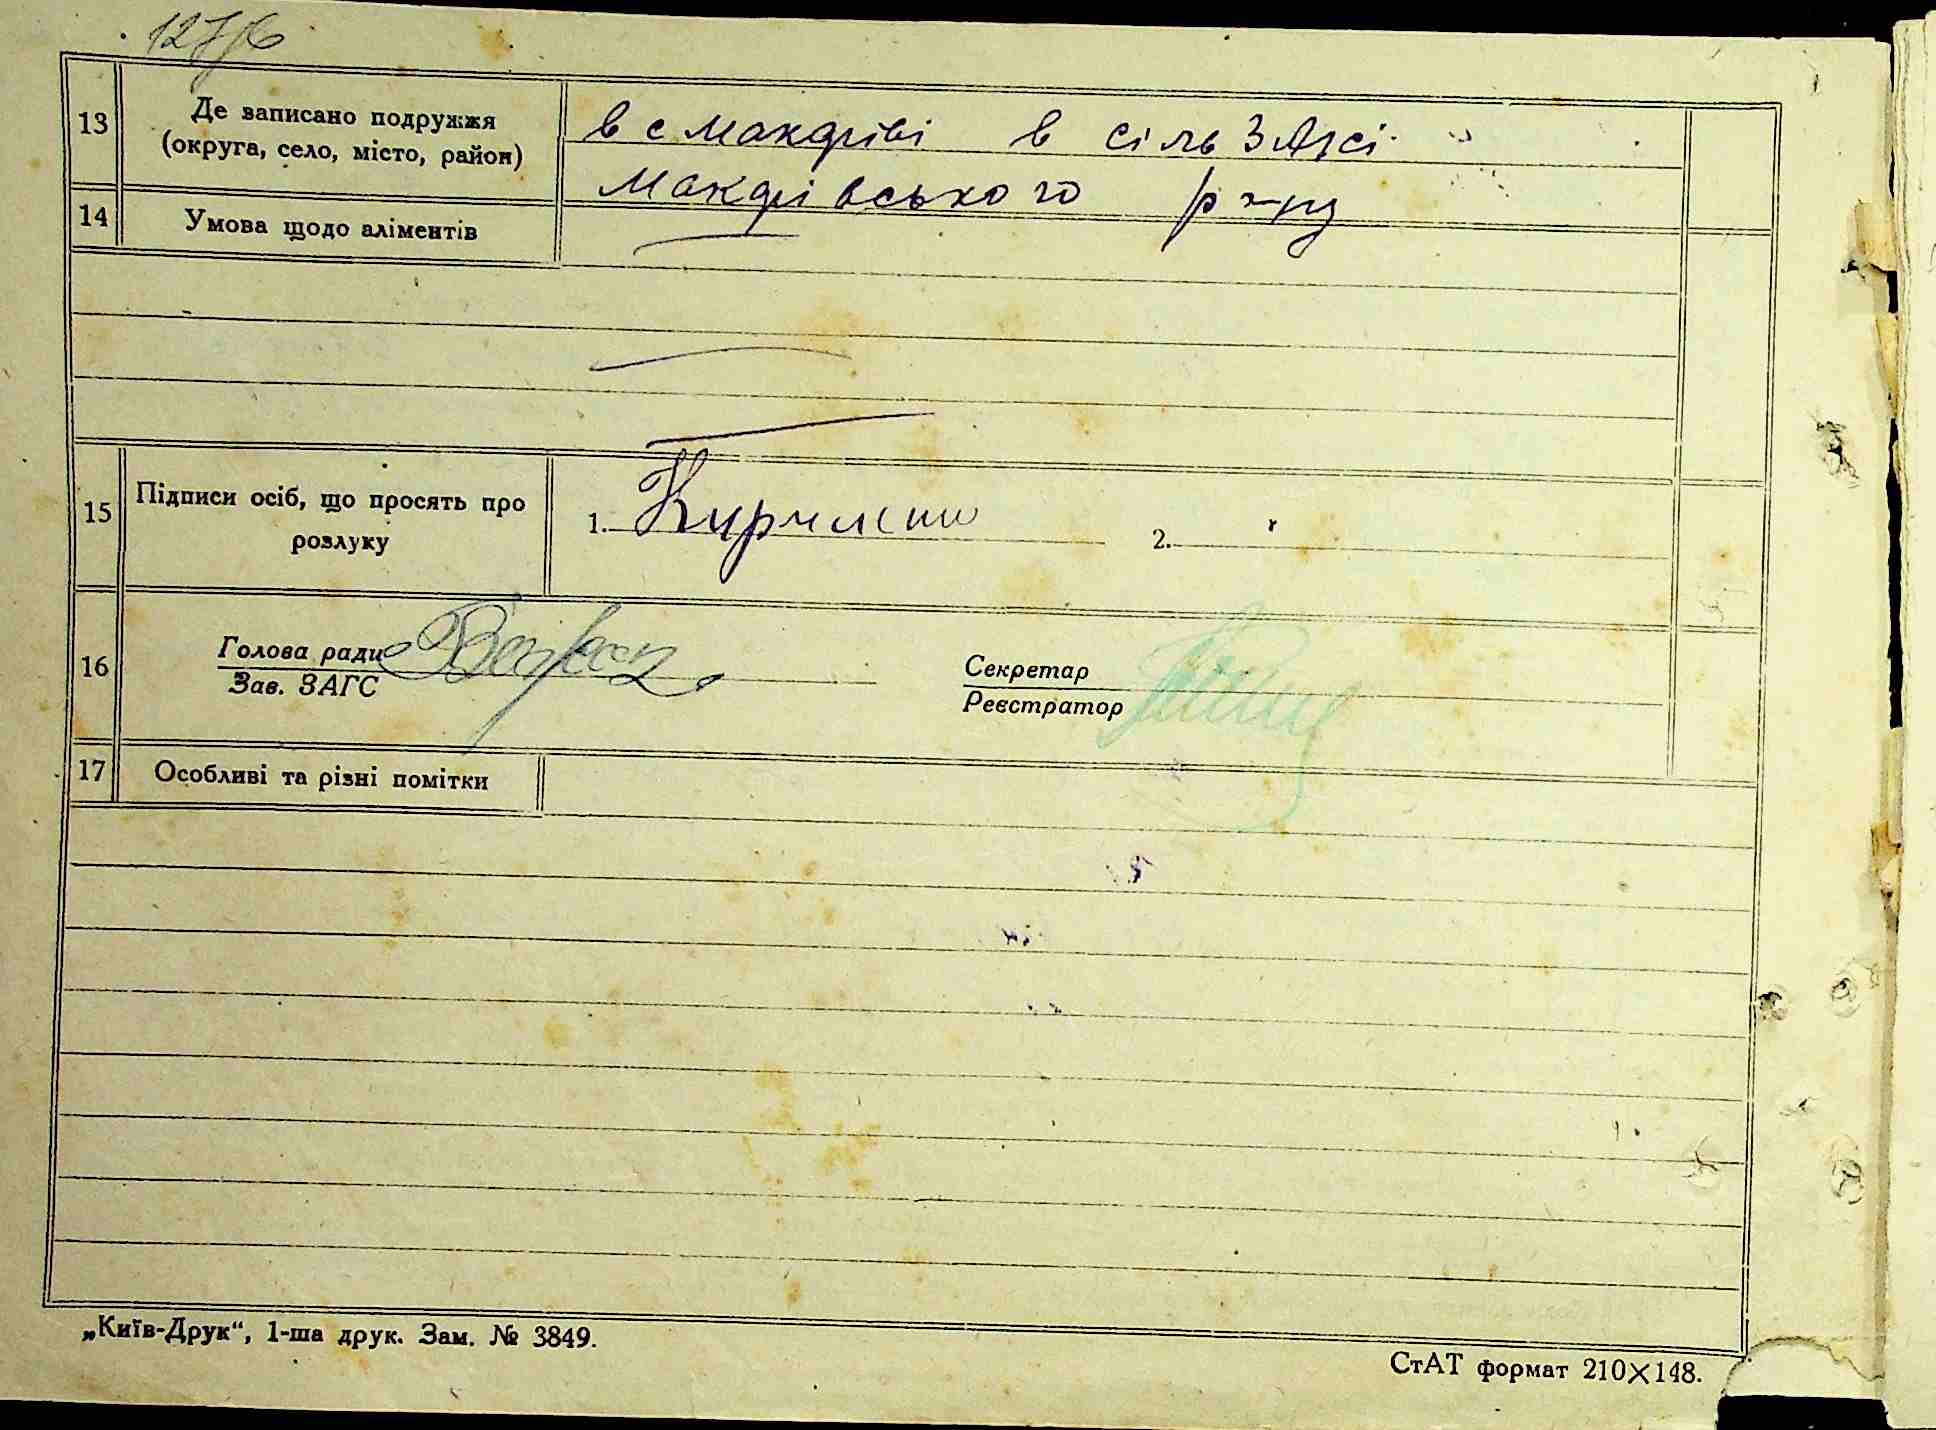 127/6
13
Де записано подружжя
(округа, село, місто, район)
в с Макарiві в сільЗАГСі
Макарівського р-ну
14
Умова щодо аліментів
15
Підписи осіб, що просять про
розлуку
1.
2.
16
Голова ради
Зав. ЗАГС
Секретар
Реєстратор
17
Особливі та різні помітки
„Київ-Друк“, 1-ша друк. Зам. № 3849.
СтАТ формат 210×148.